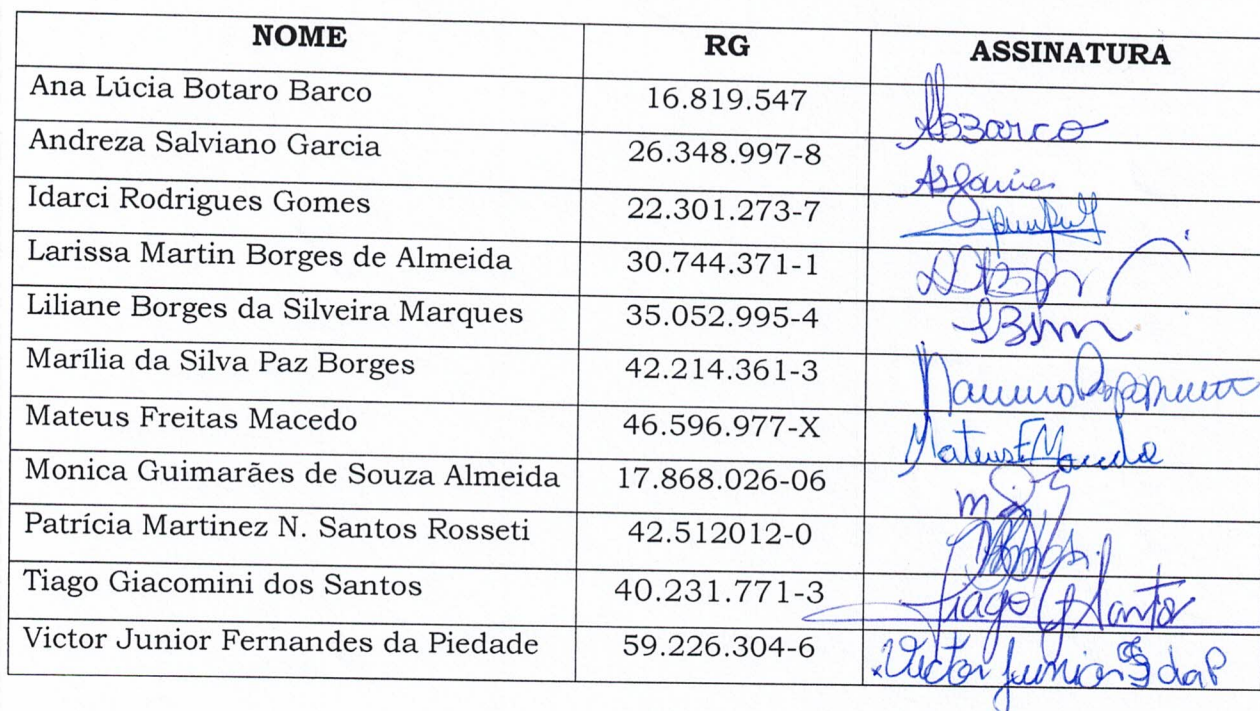 NOME RG ASSINATURA
Ana Lúcia Botaro Barco 16.819.547 ABBarco
Andreza Salviano Garcia 26.348.997-8 ASGarcia
Idarci Rodrigues Gomes 22.301.273-7
Larissa Martin Borges de Almeida 30.744.371-1
Liliane Borges da Silveira Marques 35.052.995-4 LBSM
Marília da Silva Paz Borges 42.214.361-3
Mateus Freitas Macedo 46.596.977-X Mateus F Macedo
Monica Guimarães de Souza Almeida 17.868.026-06
Patrícia Martinez N. Santos Rosseti 42.512012-0
Tiago Giacomini dos Santos 40.231.771-3 Tiago G Santos
Victor Junior Fernandes da Piedade 59.226.304-6 Victor Junior F da P